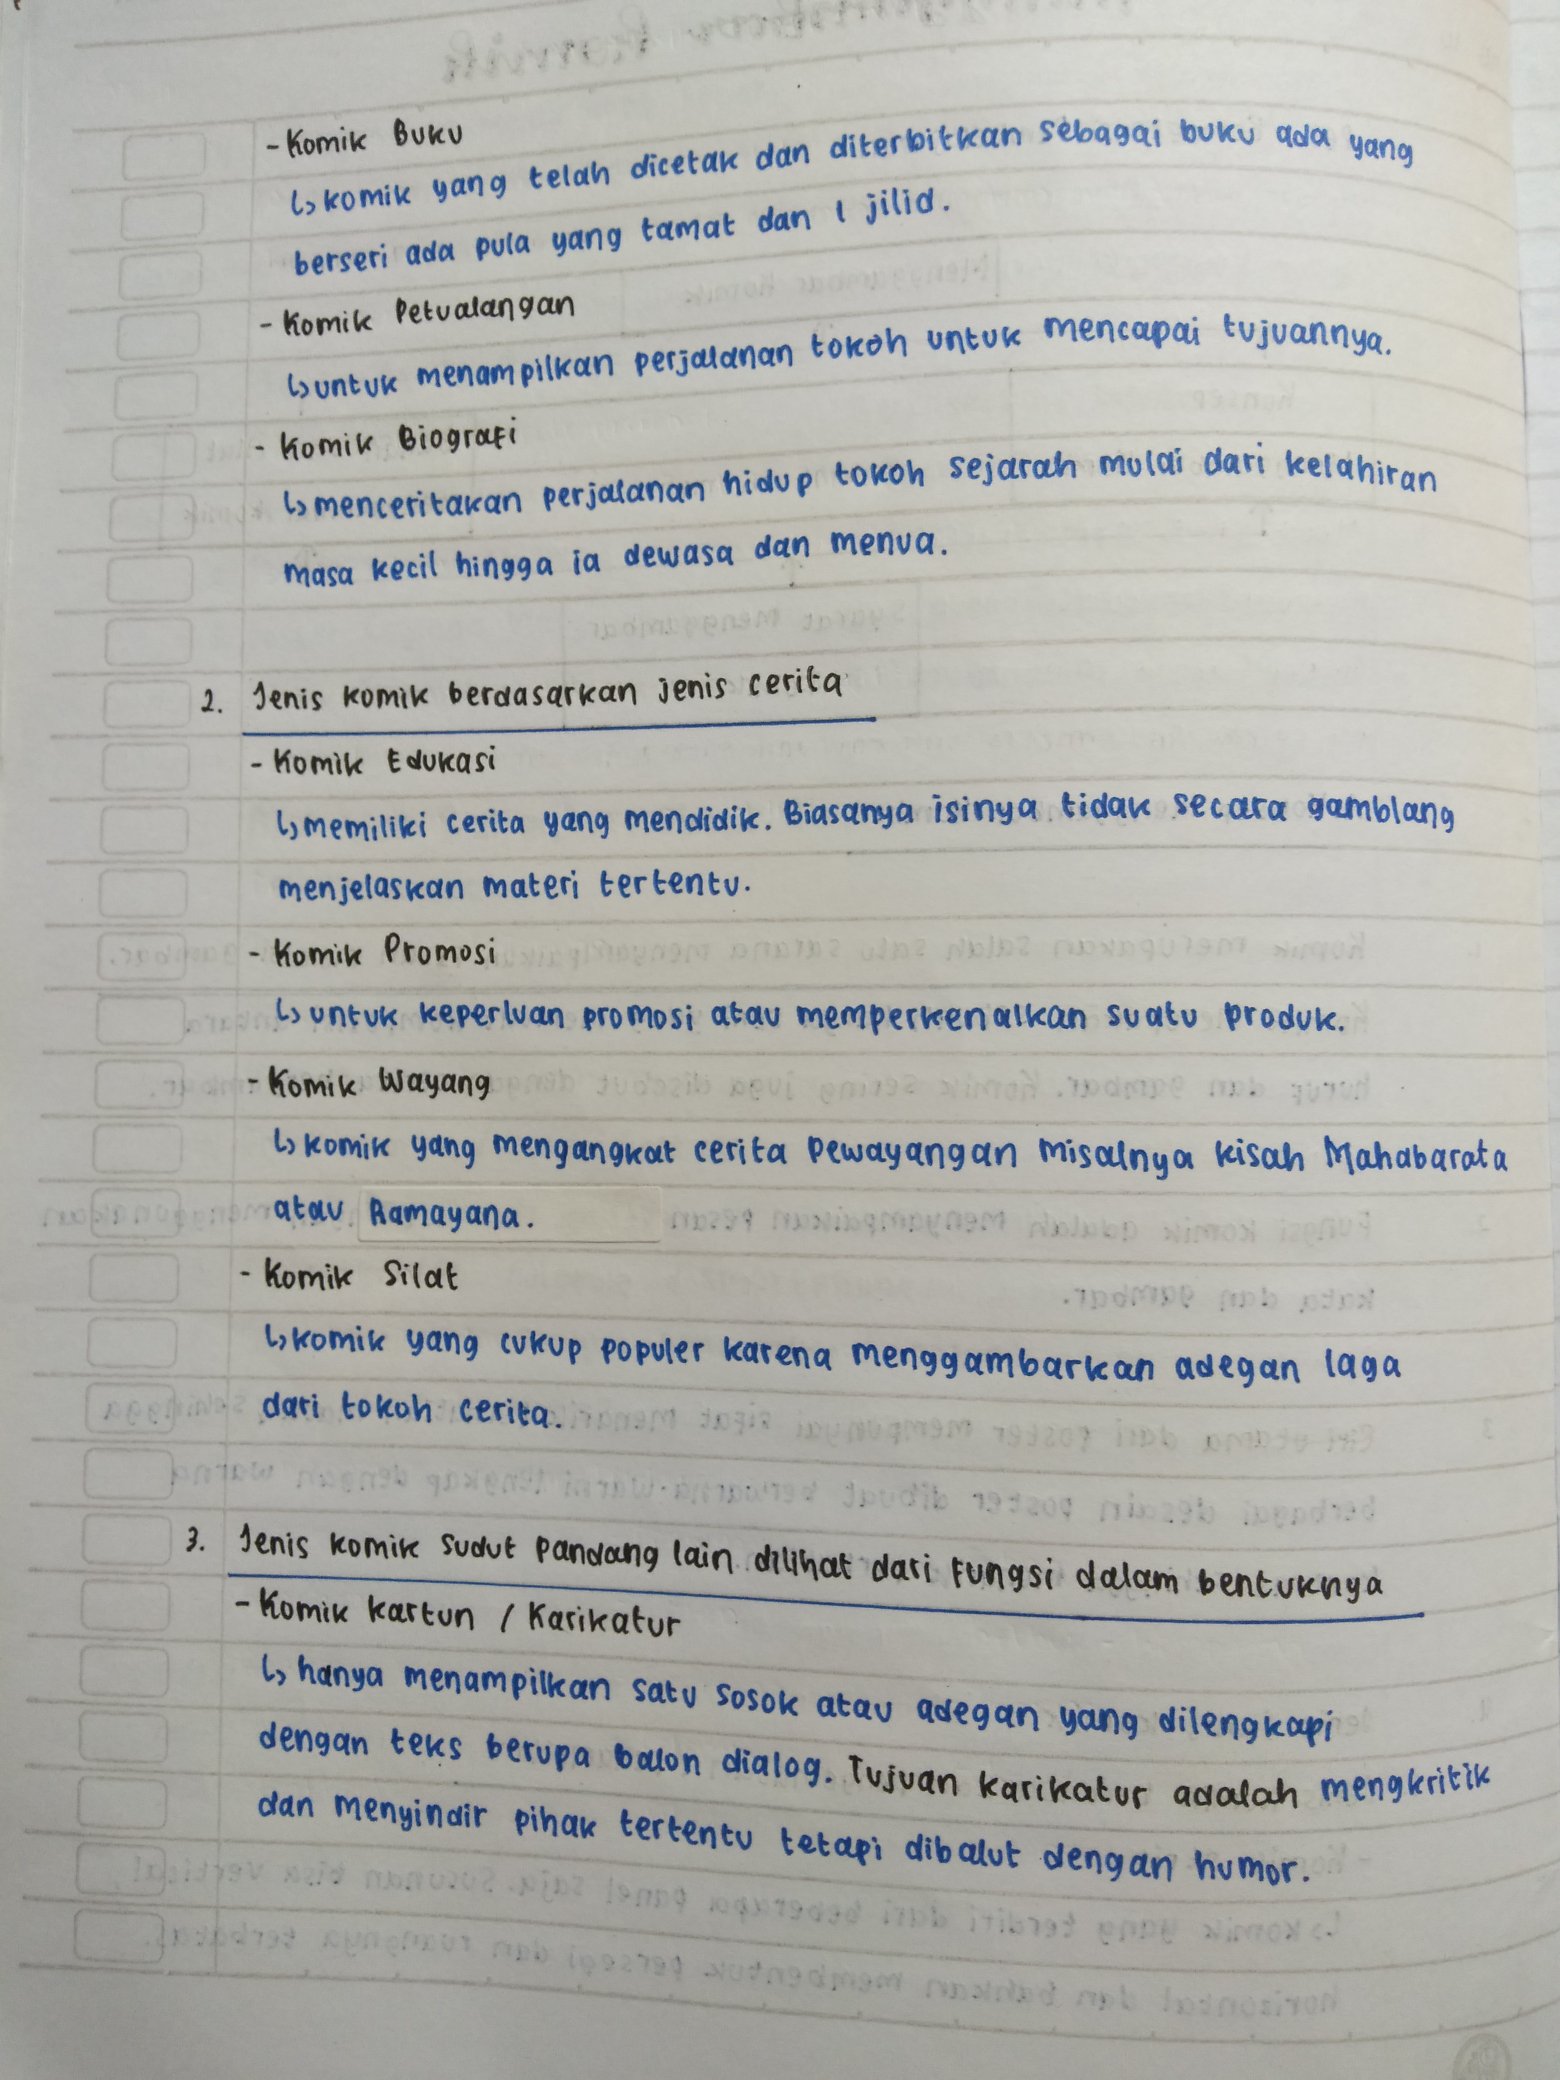 - Komik Buku
↳ komik yang telah dicetak dan diterbitkan sebagai buku ada yang
berseri ada pula yang tamat dan 1 jilid.
- Komik Petualangan
↳ untuk menampilkan perjalanan tokoh untuk mencapai tujuannya.
- Komik Biografi
↳ menceritakan perjalanan hidup tokoh sejarah mulai dari kelahiran
masa kecil hingga ia dewasa dan menua.
2. Jenis komik berdasarkan jenis cerita
- Komik Edukasi
↳ memiliki cerita yang mendidik. Biasanya isinya tidak secara gamblang
menjelaskan materi tertentu.
- Komik Promosi
↳ untuk keperluan promosi atau memperkenalkan suatu produk.
- Komik Wayang
↳ komik yang mengangkat cerita Pewayangan misalnya kisah Mahabarata
atau Ramayana.
- Komik Silat
↳ komik yang cukup populer karena menggambarkan adegan laga
dari tokoh cerita.
3. Jenis komik sudut pandang lain dilihat dari fungsi dalam bentuknya
- Komik kartun / Karikatur
↳ hanya menampilkan satu sosok atau adegan yang dilengkapi
dengan teks berupa balon dialog. Tujuan karikatur adalah mengkritik
dan menyindir pihak tertentu tetapi dibalut dengan humor.